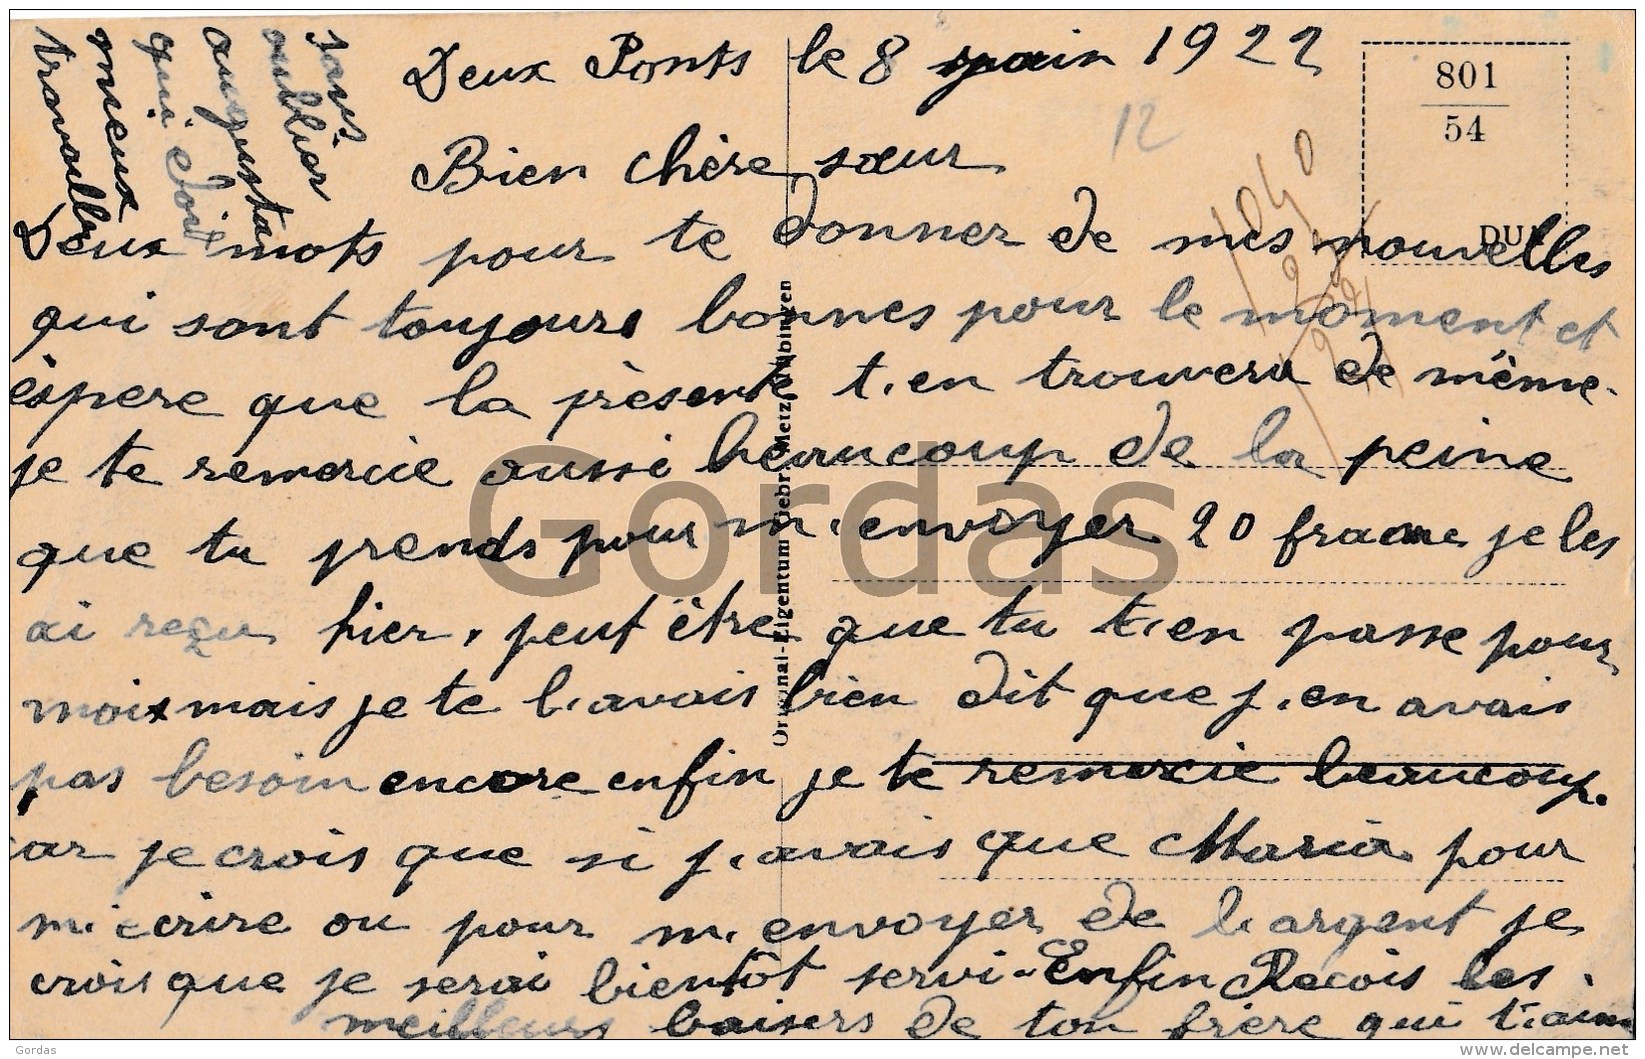 Deux Ponts le 8 juin 1922
Bien chère sœur
Deux mots pour te donner de mes nouvelles
qui sont toujours bonnes pour le moment et
éspere que la présente t.en trouvera de même.
je te remercie aussi beaucoup de la peine
que tu prends pour m.envoyer 20 francs je les
ai reçu hier, peut être que tu t.en passe pour
moi mais je te l.avais bien dit que j.en avais
pas besoin encore enfin je te remercie beaucoup.
car je crois que si j.avais que Maria pour
m.écrire ou pour m.envoyer de l.argent je
crois que je serai bientôt servi - Enfin Recois les
meilleurs baisers de ton frère qui t.aime
sans
oublier
augusta
qui doit
mieux
travailler
12
801
54
Original-Eigentum Gebr. Metz, Tübingen
Gordas
Gordas
www.delcampe.net